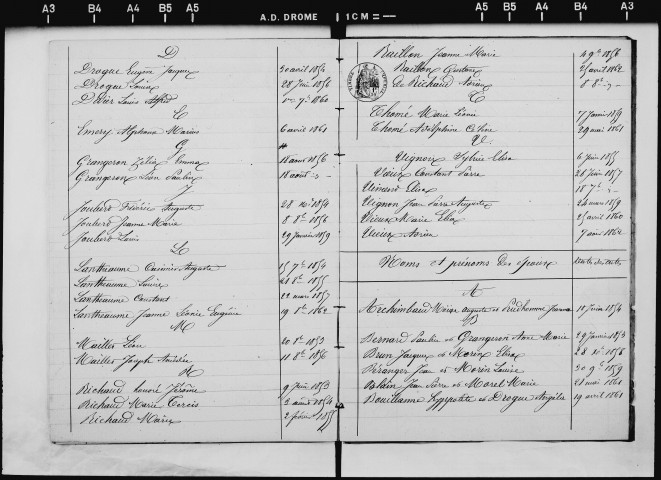 A3 B4 A4 B5 A5 A.D. DROME 1 CM A5 B5 A4 B4 A3
D
Drogue Eugène Jacques 30 avril 1854
Drogue Louise 28 Juin 1856
Didier Louis Alfred 1er 7e 1860
E
Emery Alphonse Marius 6 avril 1861
G
Grangeron Zélie Emma 18 août 1856
Grangeron Léon Paulin 18 août
J
Joubert Frédéric Auguste 28 Xe 1854
Joubert Jeanne Marie 8 8e 1856
Joubert Louis 29 Janvier 1859
L
Lantheaume Casimir Auguste 15 7e 1854
Lantheaume Louise 24 8e 1855
Lantheaume Constant 22 mars 1857
Lantheaume Jeanne Léonie Eugénie 19 8e 1862
M
Mailles Léon 20 8e 1853
Mailles Joseph Amédée 11 8e 1856
R
Richaud Honoré Jérôme 9 Juin 1853
Richaud Marie 3 1854
Richaud Marie 2 février 1855
Baillon Jeanne Marie 4 9e 1856
Baillon Gustave 25 avril 1862
de Richaud Adrien 8 8e
T
Thomé Marie Léonie 7 Janvier 1859
Thomé Adelphine Céline 29 mai 1861
V
Vignon Sylvie Elisa 6 Juin 1855
Vieux Constant Pierre 26 Juin 1857
Elisa 18 7e
Vignon Jean Pierre Auguste 24 mars 1859
Vieux Marie Elisa 25 avril 1860
Vieux Adrien 7 1862
Noms et prénoms des époux
A
Archimbaud Auguste et Prudhomme Jeanne 18 Janvier 1854
B
Bernard Paulin et Grangeron Anne Marie 29 Janvier 1853
Brun Jacques et Morin Elisa 28 Xe 1856
Béranger Jean et Morin Louise 30 9e 1859
Blein Jean Pierre et Morel Marie 21 mai 1861
Bouillanne Hyppolite et Drogue Angèle 19 avril 1861
A3 B4 A4 B5 A5 A5 B5 A4 B4 A3